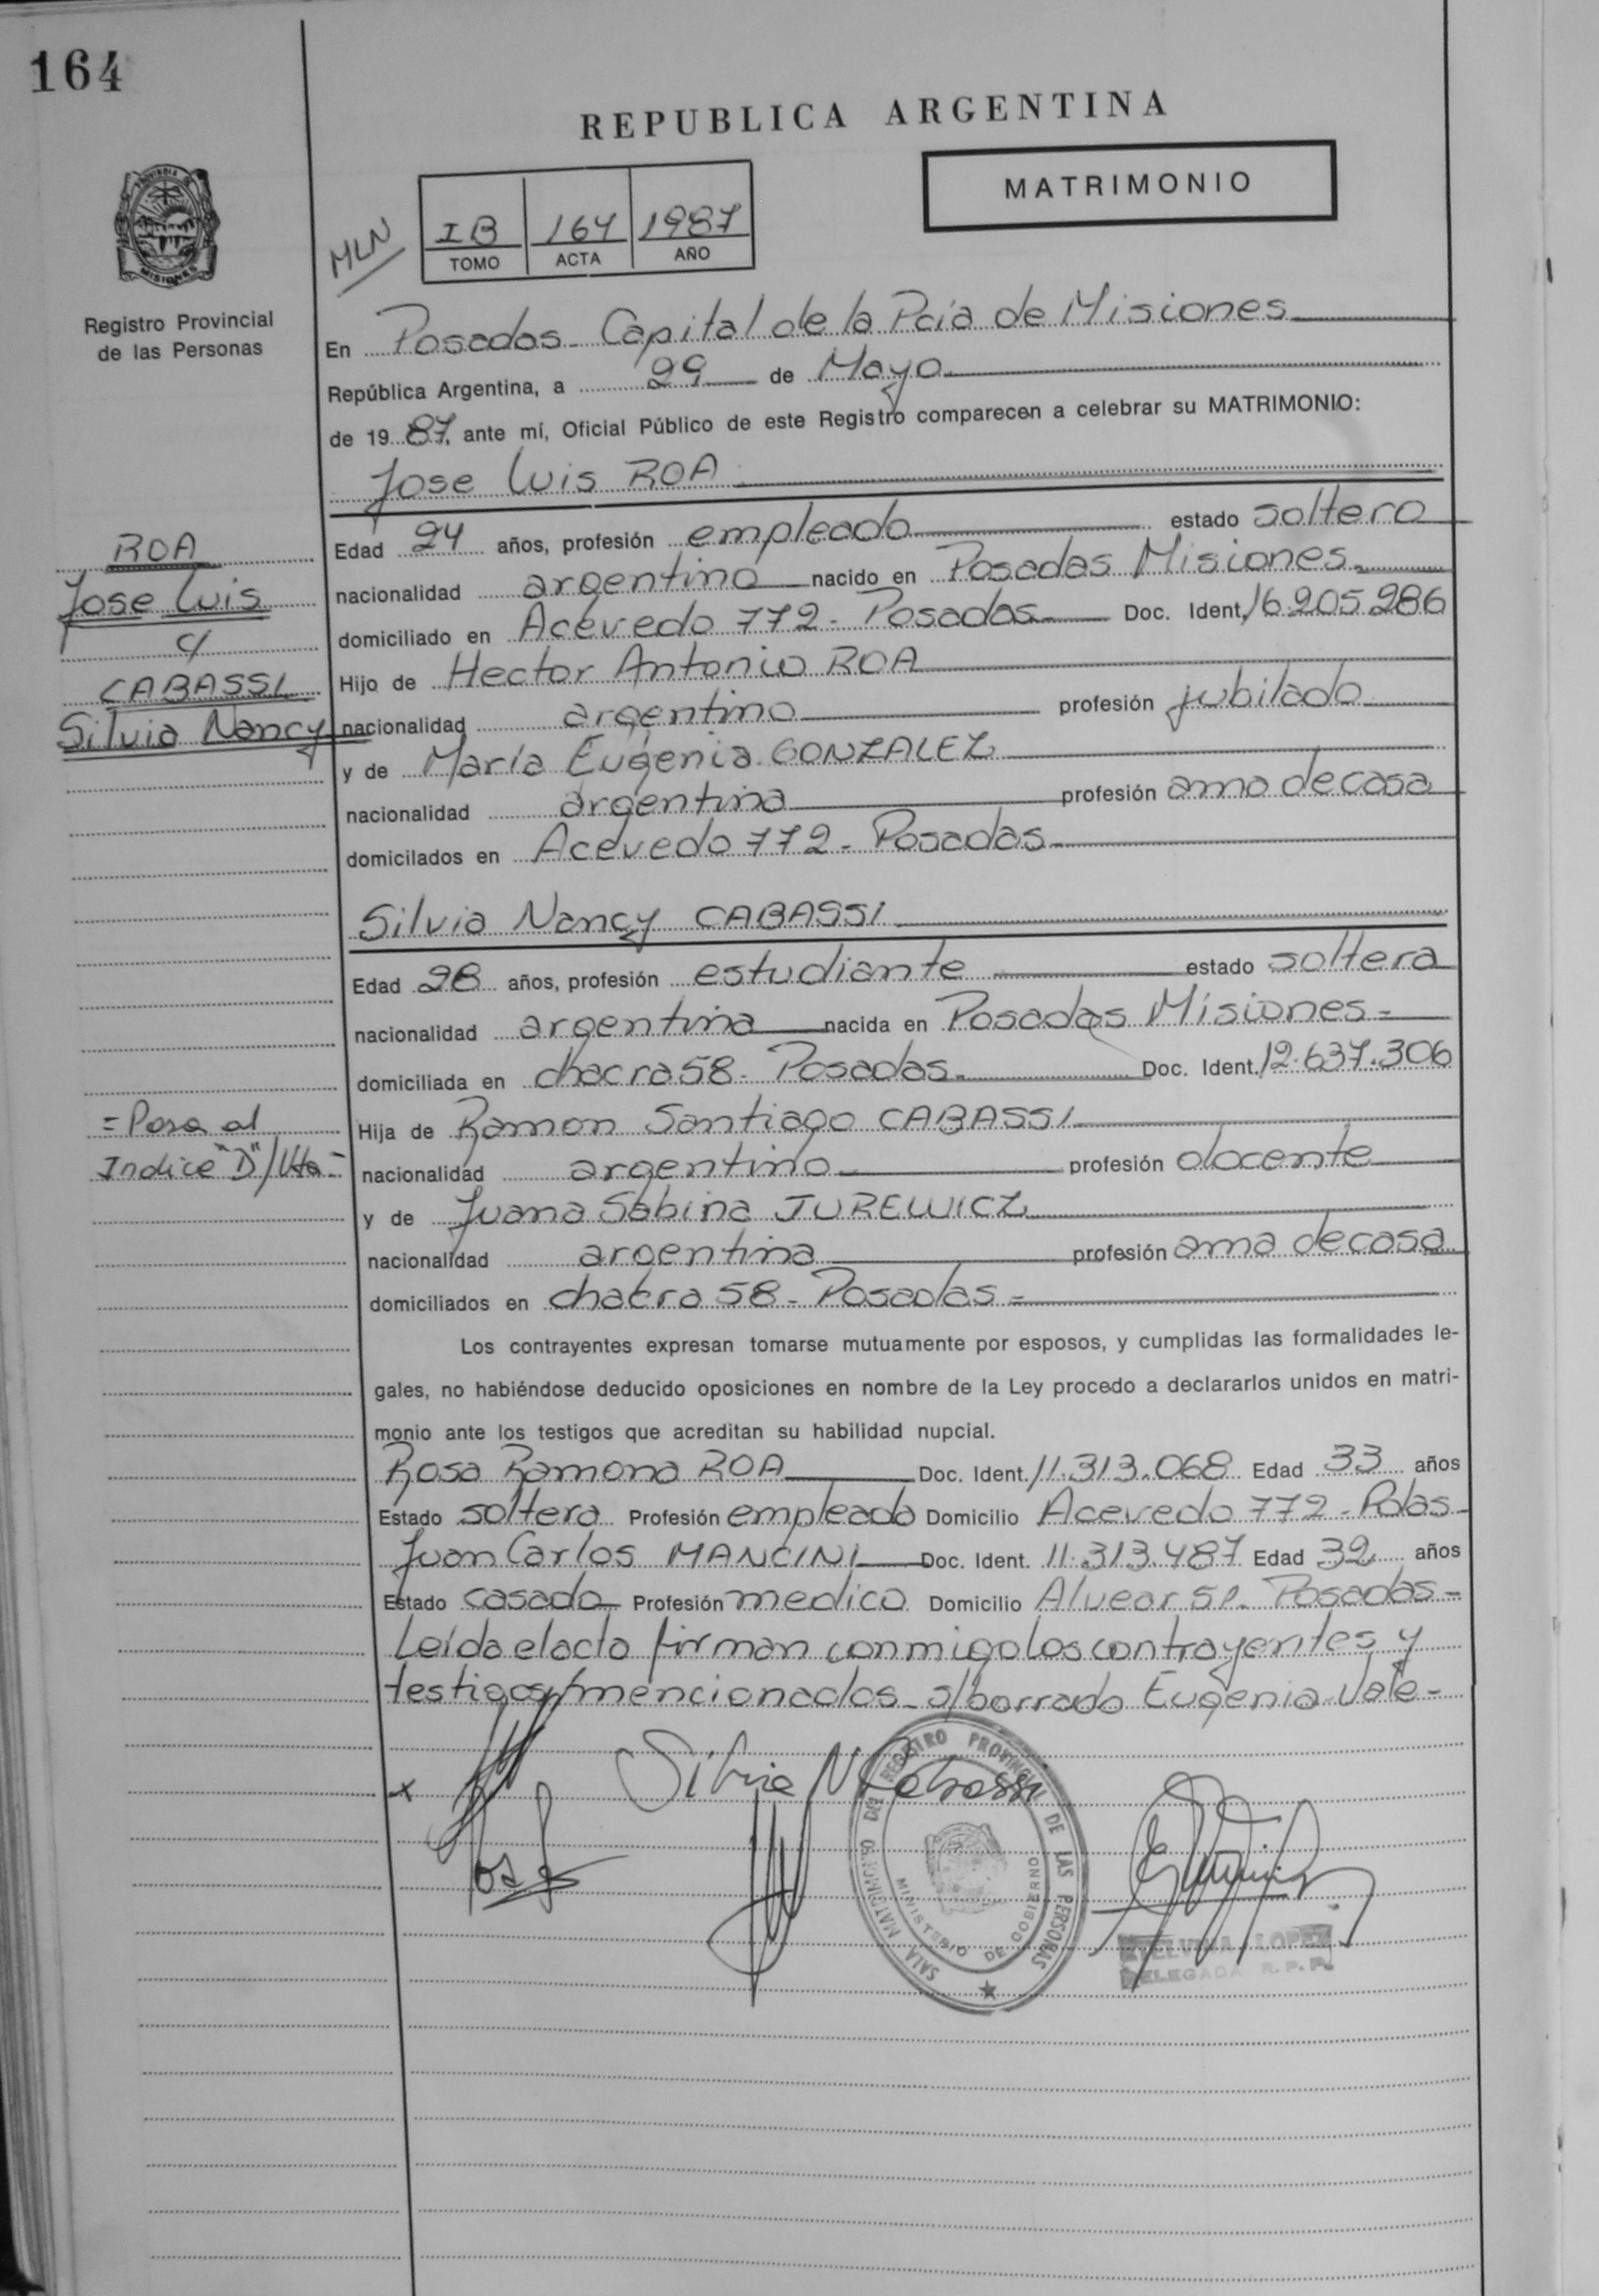 164
REPUBLICA ARGENTINA
MATRIMONIO
MLN
IB 164 1987
TOMO ACTA AÑO
PROVINCIA DE MISIONES
Registro Provincial
de las Personas
En Posadas - Capital de la Pcia de Misiones
República Argentina, a 29 de Mayo
de 1987, ante mí, Oficial Público de este Registro comparecen a celebrar su MATRIMONIO:
Jose Luis ROA
Edad 24 años, profesión empleado estado soltero
nacionalidad argentino nacido en Posadas Misiones
domiciliado en Acevedo 772 - Posadas Doc. Ident. 16.205.286
Hijo de Hector Antonio ROA
nacionalidad argentino profesión jubilado
y de María Eugenia GONZALEZ
nacionalidad argentina profesión ama de casa
domicilados en Acevedo 772 - Posadas
ROA
Jose Luis
c/
CABASSI
Silvia Nancy
Silvia Nancy CABASSI
Edad 28 años, profesión estudiante estado soltera
nacionalidad argentina nacida en Posadas Misiones -
domiciliada en chacra 58 - Posadas - Doc. Ident. 12.637.306
Hija de Ramon Santiago CABASSI
nacionalidad argentino profesión docente
y de Juana Sabina JUREWICZ
nacionalidad argentina profesión ama de casa
domiciliados en chacra 58 - Posadas -
= Pasa al
Indice "D" / Vto -
Los contrayentes expresan tomarse mutuamente por esposos, y cumplidas las formalidades le-
gales, no habiéndose deducido oposiciones en nombre de la Ley procedo a declararlos unidos en matri-
monio ante los testigos que acreditan su habilidad nupcial.
Rosa Ramona ROA Doc. Ident. 11.313.068 Edad 33 años
Estado soltera Profesión empleada Domicilio Acevedo 772 - Pdas -
Juan Carlos MANCINI Doc. Ident. 11.313.487 Edad 32 años
Estado casado Profesión medico Domicilio Alvear 51 - Posadas -
Leída el acta firman conmigo los contrayentes y
testigos mencionados - s/borrado Eugenia Vale -
x Silvia N Cabassi
SALA MATRIMONIO DEL REGISTRO PROVINCIAL DE LAS PERSONAS
MINISTERIO DE GOBIERNO
ELVIRA LOPEZ
DELEGADA R. P. P.